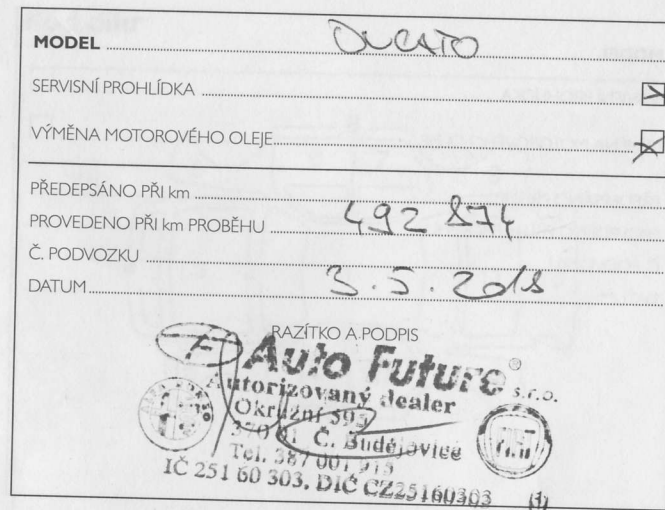 MODEL DUCATO
SERVISNÍ PROHLÍDKA
VÝMĚNA MOTOROVÉHO OLEJE
PŘEDEPSÁNO PŘI km
PROVEDENO PŘI km PROBĚHU 492 874
Č. PODVOZKU
DATUM 3.5.2018
RAZÍTKO A PODPIS
Auto Future s.r.o.
Autorizovaný dealer
Okružní 595
370 01 Č. Budějovice
Tel. 387 001 915
IČ 251 60 303, DIČ CZ25160303